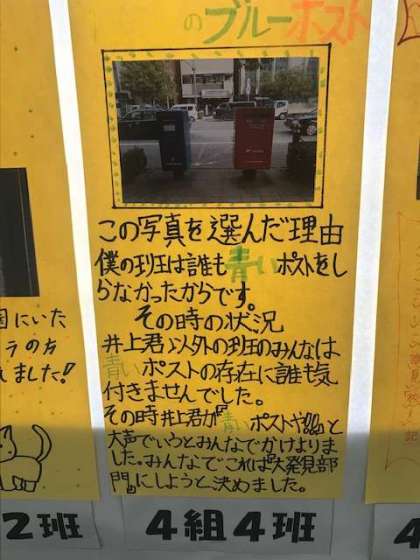 のブルーポスト
この写真を選んだ理由
僕の班は誰も青いポストをし
らなかったからです。
その時の状況
井上君以外の班のみんなは
青いポストの存在に誰も気
付きませんでした。
その時井上君が『青いポストや』と
大声でいうとみんなでかけより
ました。みんなでこれは『大発見部
門』にしようと決めました。
4組4班
国にいた
ラの方
れました!!
2班
4